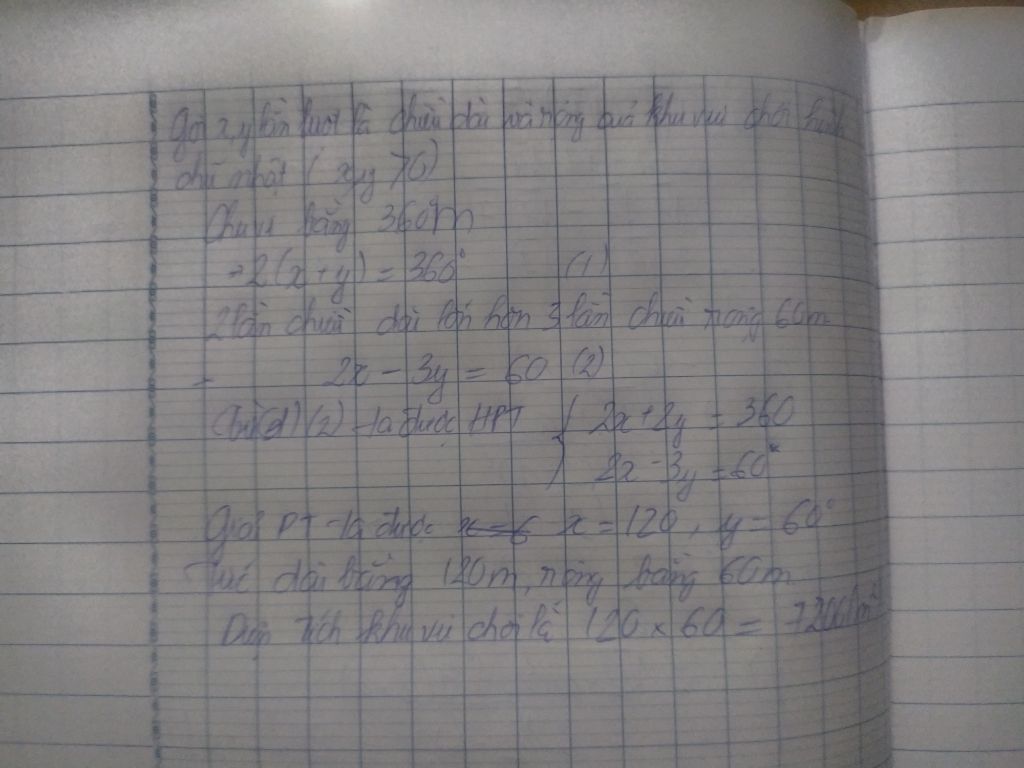 Gọi x,y lần lượt là chiều dài và rộng của khu vui chơi hình
chữ nhật ( x,y >0)
Chu vi bằng 360m
2(x+y) = 360 (1)
2 lần chiều dài lớn hơn 3 lần chiều rộng 60m
2x - 3y = 60 (2)
Từ (1) (2) ta được HPT { 2x + 2y = 360
2x - 3y = 60
Giải PT ta được x = 6 x = 120, y = 60
Tức dài bằng 120m, rộng bằng 60m
Diện tích khu vui chơi là 120 x 60 = 7200m²